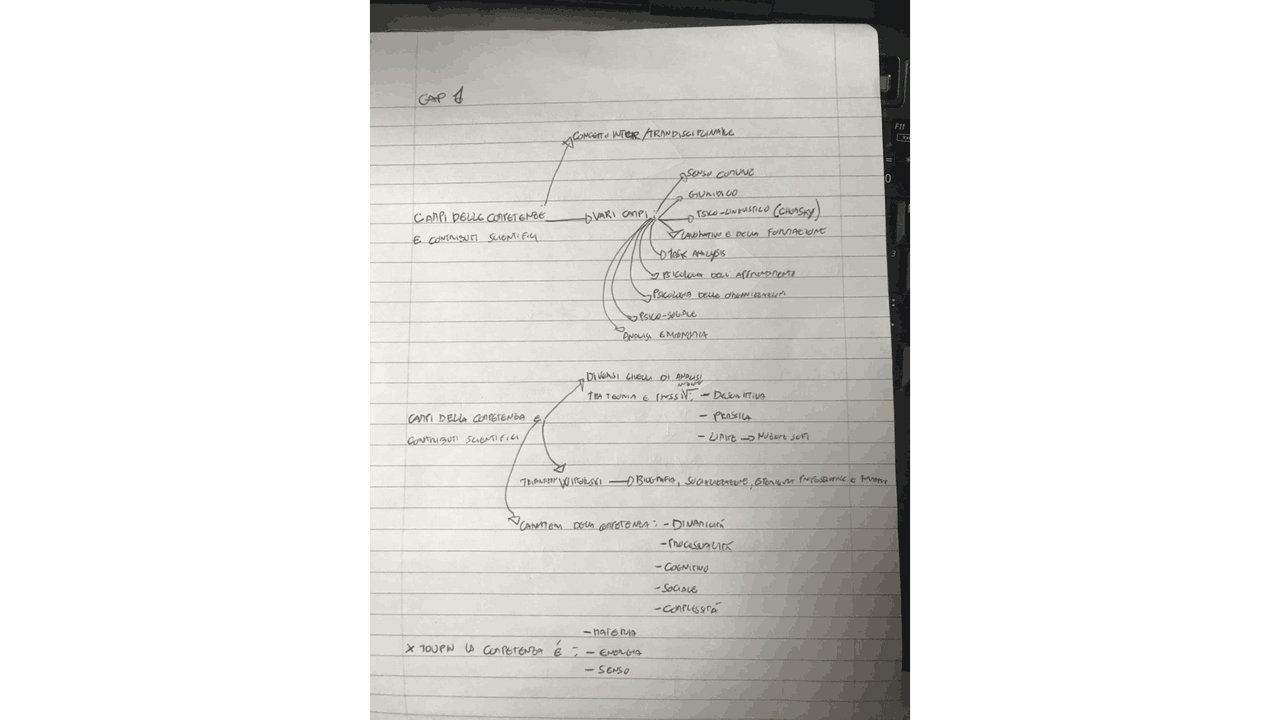 CAP 1
CONCETTO INTER/TRANDISCIPLINARE
CAMPI DELLE COMPETENZE
E CONTRIBUTI SCIENTIFICI
VARI CAMPI
SENSO COMUNE
GIURIDICO
PSICO-LINGUISTICO (CHOMSKY)
LAVORATIVO E DELLA FORMAZIONE
TASK ANALYSIS
PSICOLOGIA DELL'APPRENDIMENTO
PSICOLOGIA DELLE ORGANIZZAZIONI
PSICO-SOCIALE
ANALISI
DIVERSI LIVELLI DI ANALISI
TRA TEORIA E PRASSI
- DESCRITTIVA
- PRASSICA
- LIMITE → 
CAMPI DELLA COMPETENZA E
CONTRIBUTI SCIENTIFICI
WITORSKI → BIOGRAFIA, SOCIALIZZAZIONE,
CARATTERI DELLA COMPETENZA: - DINAMICITÀ
- PROCESSUALITÀ
- COGNITIVO
- SOCIALE
- COMPLESSITÀ
- MATERIA
X TOUPIN LA COMPETENZA È : - ENERGIA
- SENSO
F11